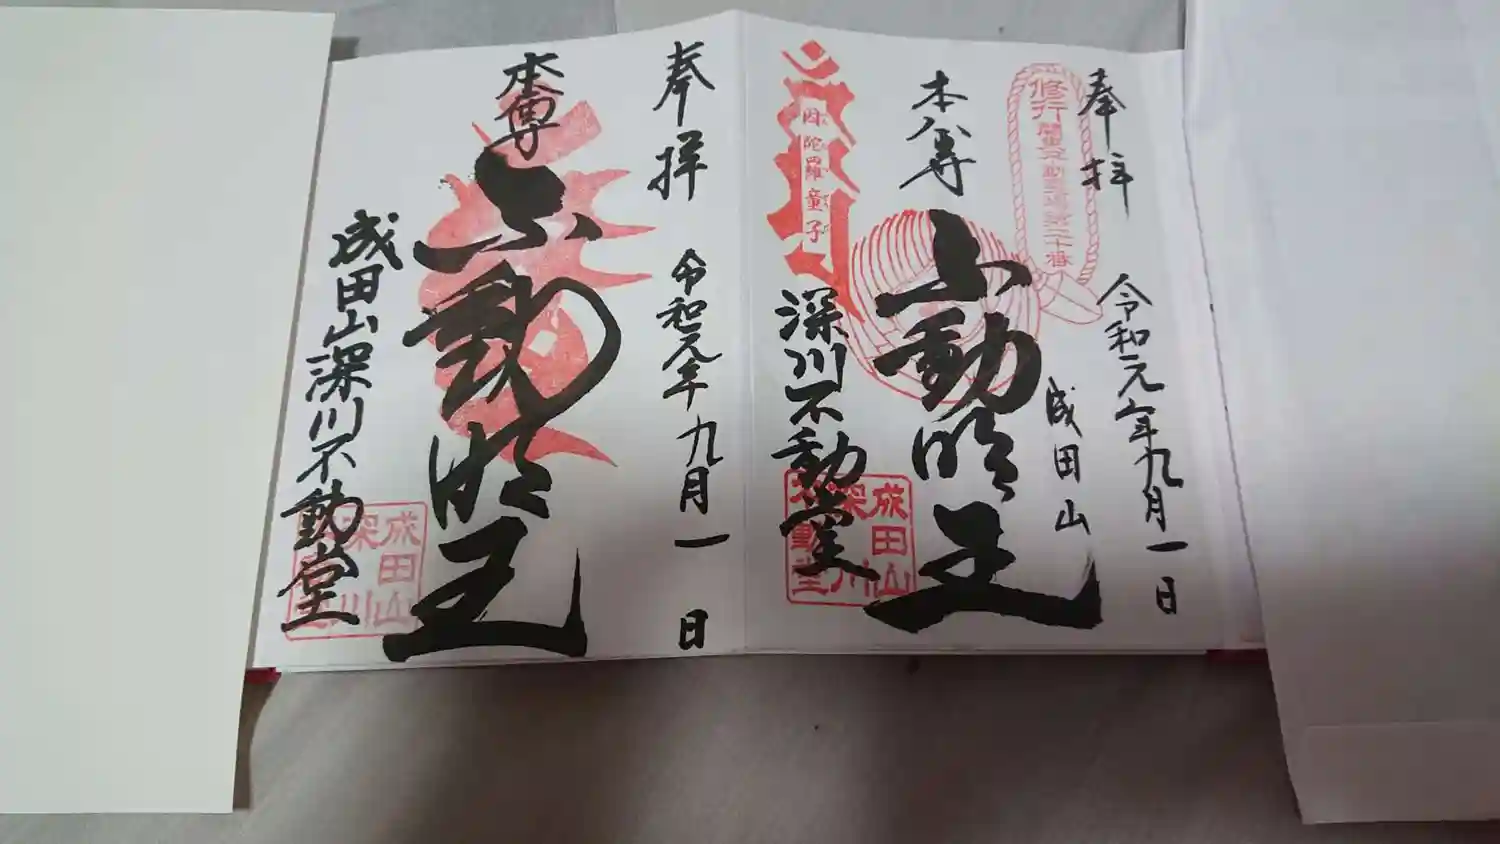 奉拝
令和元年九月一日
修行
本尊
不動明王
成田山
深川不動堂
因陀羅童子
成田山
深川
不動堂
奉拝
令和元年九月一日
本尊
不動明王
成田山深川不動堂
成田山
深川
不動堂